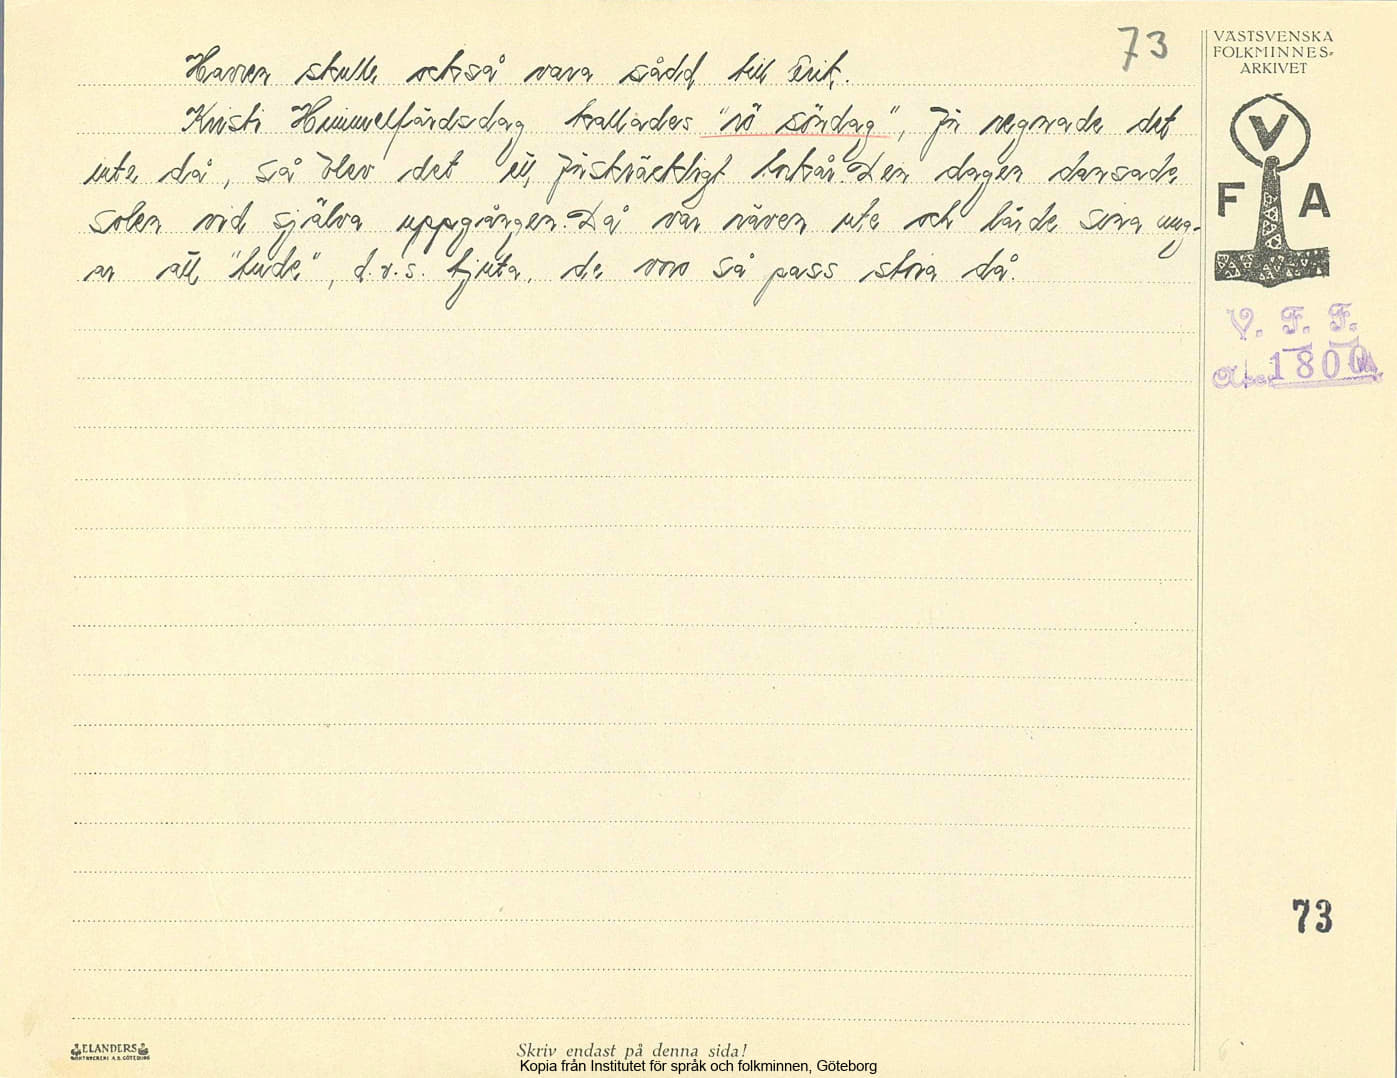 73
VÄSTSVENSKA
FOLKMINNES-
ARKIVET
Havren skulle också vara sådd till Erik.
Kristi Himmelfärdsdag kallades "rö söndag", Ju regnade det
inte då, så blev det ett förskräckligt torkår. Den dagen dansade
solen vid själva uppgången. Då var räven ute och lärde sina ung-
ar att "tude", d.v.s. tjuta, de voro så pass stora då.
V
F A
V. F. F.
1800
73
ELANDERS
GÖTEBORG
Skriv endast på denna sida!
Kopia från Institutet för språk och folkminnen, Göteborg